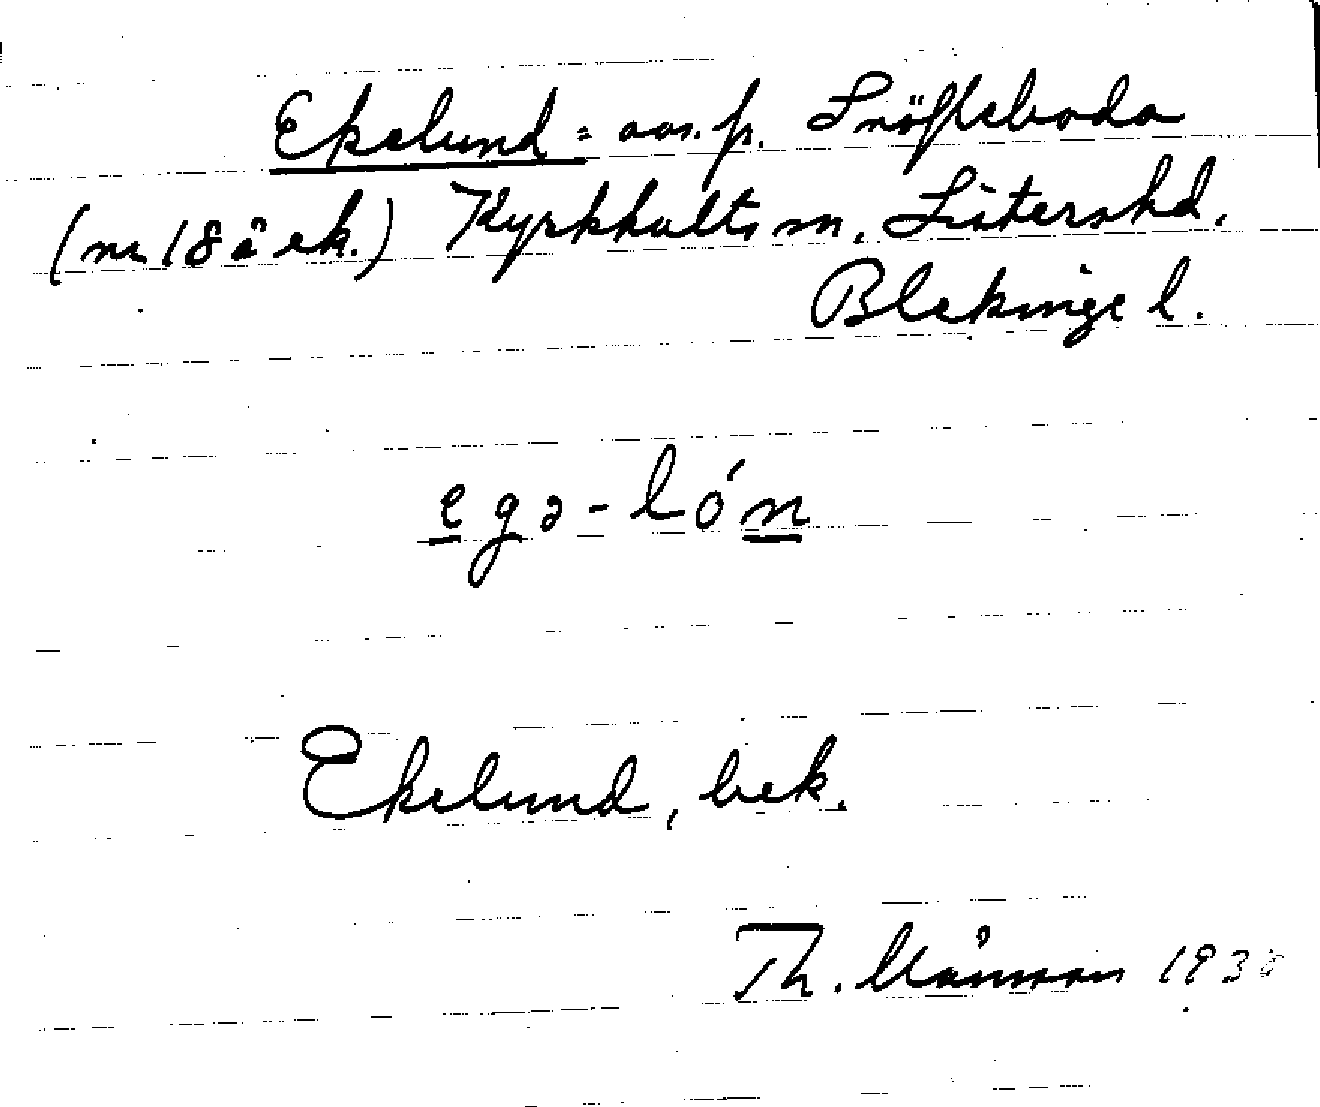 Ekelund = avs. p. Snöfleboda
(nr 18 å ek.) Kyrkhults sn, Listers hd.
Blekinge l.
egə-lón
Ekelund, bek.
Th. Månsson 193